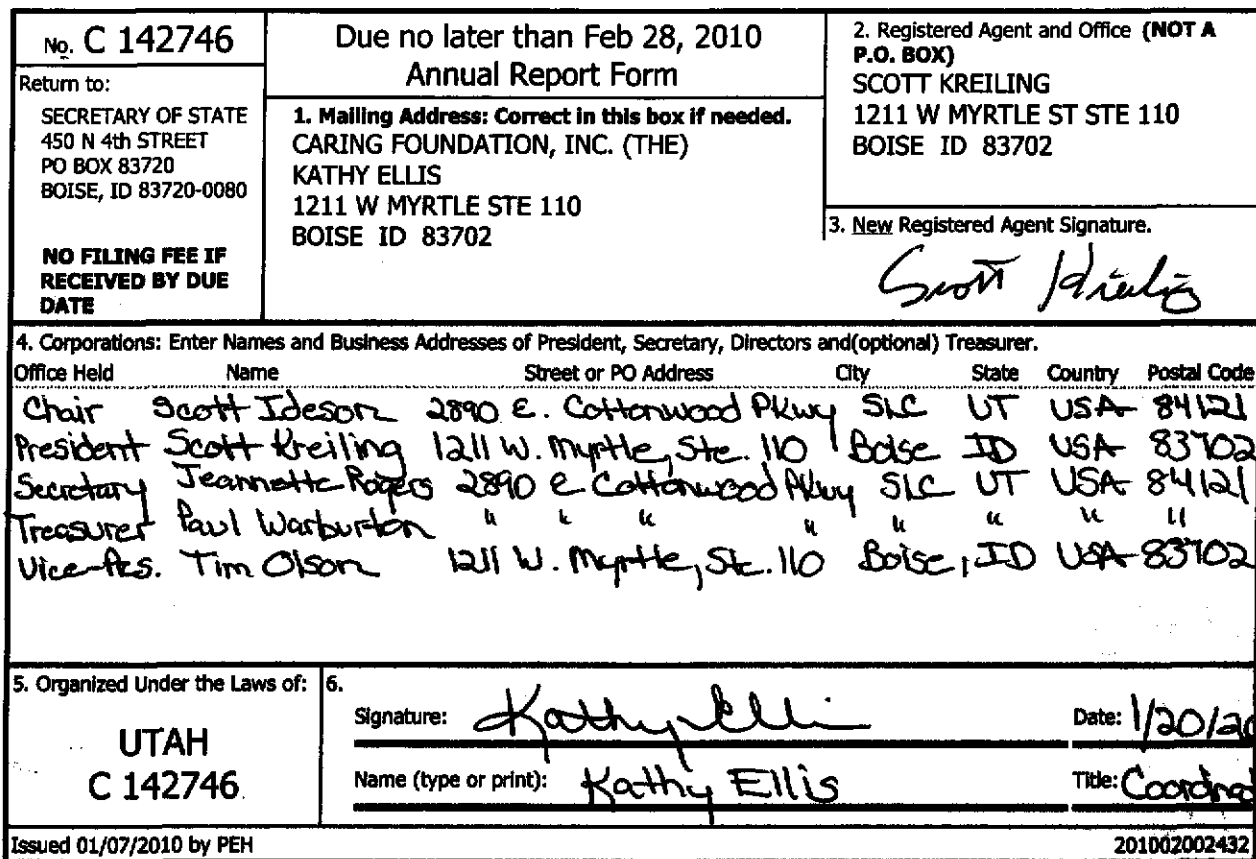 No. C 142746
Return to:
SECRETARY OF STATE
450 N 4th STREET
PO BOX 83720
BOISE, ID 83720-0080
NO FILING FEE IF
RECEIVED BY DUE
DATE
Due no later than Feb 28, 2010
Annual Report Form
1. Mailing Address: Correct in this box if needed.
CARING FOUNDATION, INC. (THE)
KATHY ELLIS
1211 W MYRTLE STE 110
BOISE ID 83702
2. Registered Agent and Office (NOT A
P.O. BOX)
SCOTT KREILING
1211 W MYRTLE ST STE 110
BOISE ID 83702
3. New Registered Agent Signature.
Scott Kreiling
4. Corporations: Enter Names and Business Addresses of President, Secretary, Directors and(optional) Treasurer.
Office Held Name Street or PO Address City State Country Postal Code
Chair Scott Ideson 2890 E. Cottonwood Pkwy SLC UT USA 84121
President Scott Kreiling 1211 W. Myrtle, Ste. 110 Boise ID USA 83702
Secretary Jeannette Rogers 2890 E Cottonwood Pkwy SLC UT USA 84121
Treasurer Paul Warburton " " " " " " " "
Vice-Pres. Tim Olson 1211 W. Myrtle, Ste. 110 Boise, ID USA 83702
5. Organized Under the Laws of:
UTAH
C 142746
6.
Signature: Kathy Ellis Date: 1/20/20
Name (type or print): Kathy Ellis Title:
Issued 01/07/2010 by PEH 201002002432